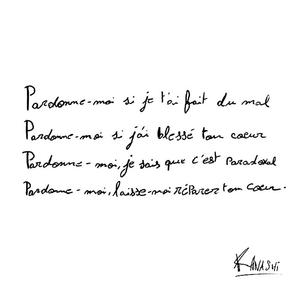 Pardonne-moi si je t'ai fait du mal
Pardonne-moi si j'ai blessé ton coeur
Pardonne-moi, je sais que c'est Paradoxal
Pardonne-moi, laisse-moi réparer ton coeur.
KANASHI